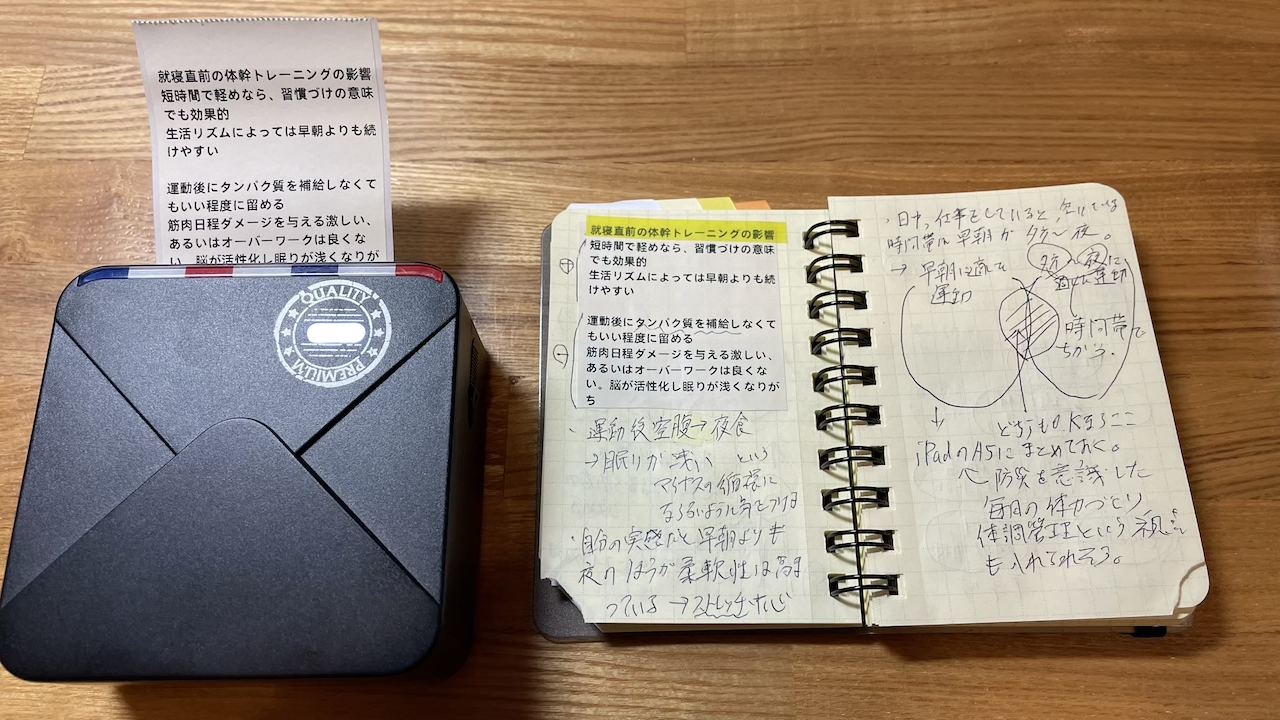 就寝直前の体幹トレーニングの影響
短時間で軽めなら、習慣づけの意味
でも効果的
生活リズムによっては早朝よりも続
けやすい
運動後にタンパク質を補給しなくて
もいい程度に留める
筋肉日程ダメージを与える激しい、
あるいはオーバーワークは良くな
い。脳が活性化し眠りが浅くなりが
QUALITY
PREMIUM
就寝直前の体幹トレーニングの影響
短時間で軽めなら、習慣づけの意味
でも効果的
生活リズムによっては早朝よりも続
けやすい
運動後にタンパク質を補給しなくて
もいい程度に留める
筋肉日程ダメージを与える激しい、
あるいはオーバーワークは良くな
い。脳が活性化し眠りが浅くなりが
ち
・運動後空腹→夜食
→眠りが浅い という
マイナスの循環に
ならないように気をつける
・自分の実感だと早朝よりも
夜のほうが柔軟性は高ま
っている→ストレッチ中心
・日中、仕事をしていると、空いている
時間帯は早朝か夕方〜夜。
→早朝は直で
運動
夕方〜夜に
運動
時間帯で
ちがう。
↓
どちらも
iPadのA5にまとめておく。
防災を意識した
毎日の体力づくり
体調管理という視点
も入れられそう。